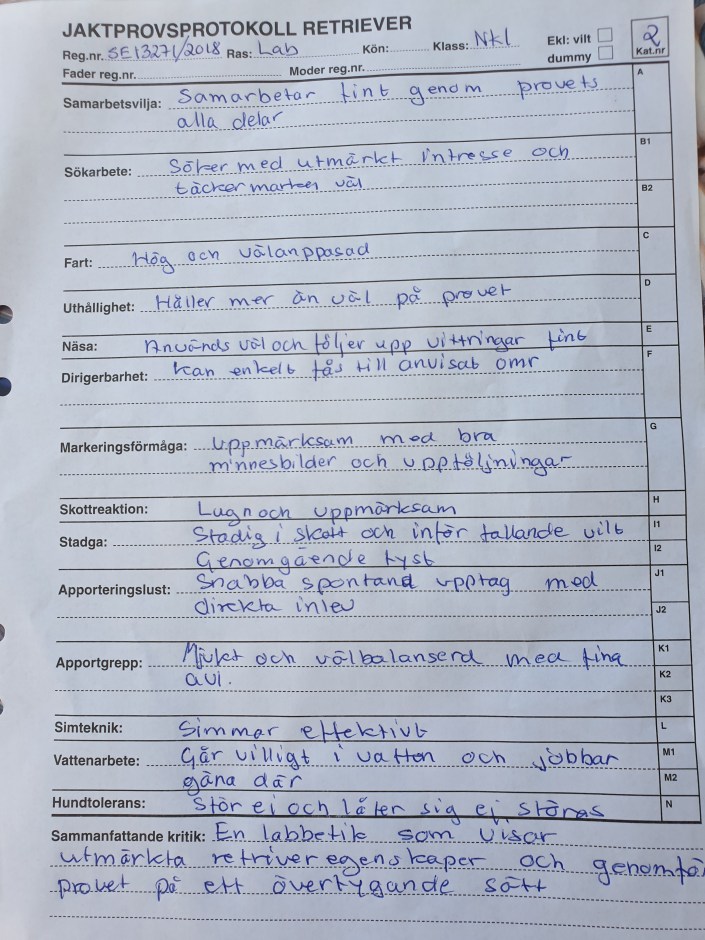 JAKTPROVSPROTOKOLL RETRIEVER
Reg.nr. SE13271/2018 Ras: Lab Kön: Klass: Nkl Ekl: vilt 2
dummy Kat.nr
Fader reg.nr. Moder reg.nr.
Samarbetsvilja: Samarbetar fint genom provets A
alla delar
Sökarbete: Söker med utmärkt intresse och B1
täcker marken väl B2
Fart: Hög och välanppasad C
Uthållighet: Håller mer än väl på provet D
Näsa: Används väl och följer upp vittringar fint E
Dirigerbarhet: Kan enkelt fås till anvisat omr F
Markeringsförmåga: Uppmärksam med bra G
minnesbilder och uppföljningar
Skottreaktion: Lugn och uppmärksam H
Stadga: Stadig i skott och inför fallande vilt I1
Genomgående tyst I2
Apporteringslust: Snabba spontana upptag med J1
direkta inlev J2
Apportgrepp: Mjukt och välbalanserd med fina K1
avl. K2
K3
Simteknik: Simmar effektivt L
Vattenarbete: Går villigt i vatten och jobbar M1
gäna där M2
Hundtolerans: Stör ej och låter sig ej störas N
Sammanfattande kritik: En labbetik som visar
utmärkta retriveregenskaper och genomfö
provet på ett övertygande sätt